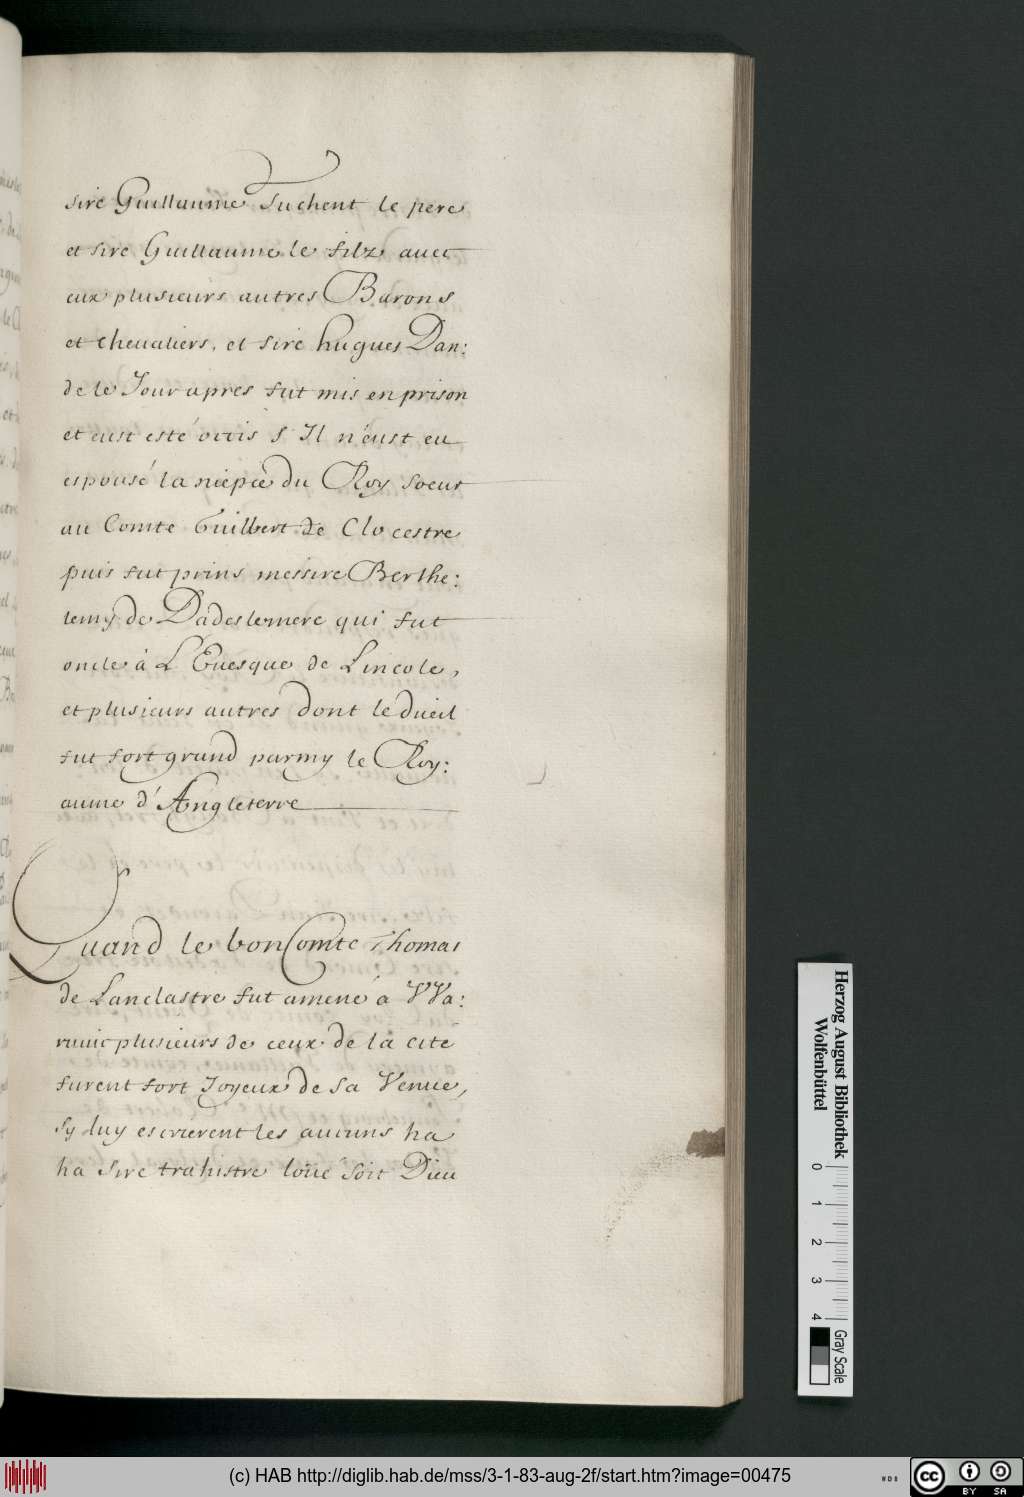 sire Guillaume Tuchent le pere
et sire Guillaume le filz avec
eux plusieurs autres Barons
et chevaliers, et sire hugues Dan:
de le Jour apres fut mis en prison
et eust esté occis s'Il n'eust eu
espousé la niepce du Roy soeur
au Comte Guilbert de Clocestre
puis fut prins messire Berthe:
lemy de Dadeslemere qui fut
oncle à L'Euesque de Lincole,
et plusieurs autres dont le dueil
fut fort grand parmy le Roy:
aume d'Angleterre
Quand le bon Comte Thomas
de Lanclastre fut amené a VVa:
ruuic plusieurs de ceux de la cité
furent fort Joyeux de sa Venue,
sy luy escrierent les aucuns ha
ha sire trahistre loüé soit Dieu
Herzog August Bibliothek
Wolfenbüttel
0 1 2 3 4
Gray Scale
(c) HAB http://diglib.hab.de/mss/3-1-83-aug-2f/start.htm?image=00475
WDB
cc BY SA